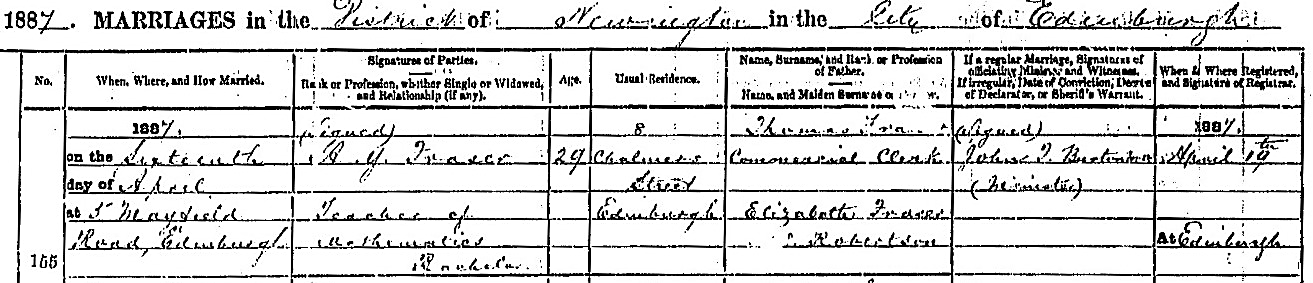 1887. MARRIAGES in the District of Newington in the City of Edinburgh
No.
When, Where, and How Married.
Signatures of Parties.
Rank or Profession, whether Single or Widowed, and Relationship (if any).
Age.
Usual Residence.
Name, Surname, and Rank or Profession of Father.
Name, and Maiden Surname of
If a regular Marriage, Signatures of officiating Minister and Witnesses.
If irregular, Date of Conviction, Decree of Declarator, or Sheriff's Warrant.
When & Where Registered, and Signature of Registrar.
155
1887.
on the Sixteenth
day of April
at 5 Mayfield
Road, Edinburgh
(Signed)
A. Y. Fraser
Teacher of
Mathematics
Bachelor
29
8
Chalmers
Street
Edinburgh
Thomas
Commercial Clerk
Elizabeth Fraser
Robertson
(Signed)
John T.
(Minister)
1887.
April 19th
At Edinburgh